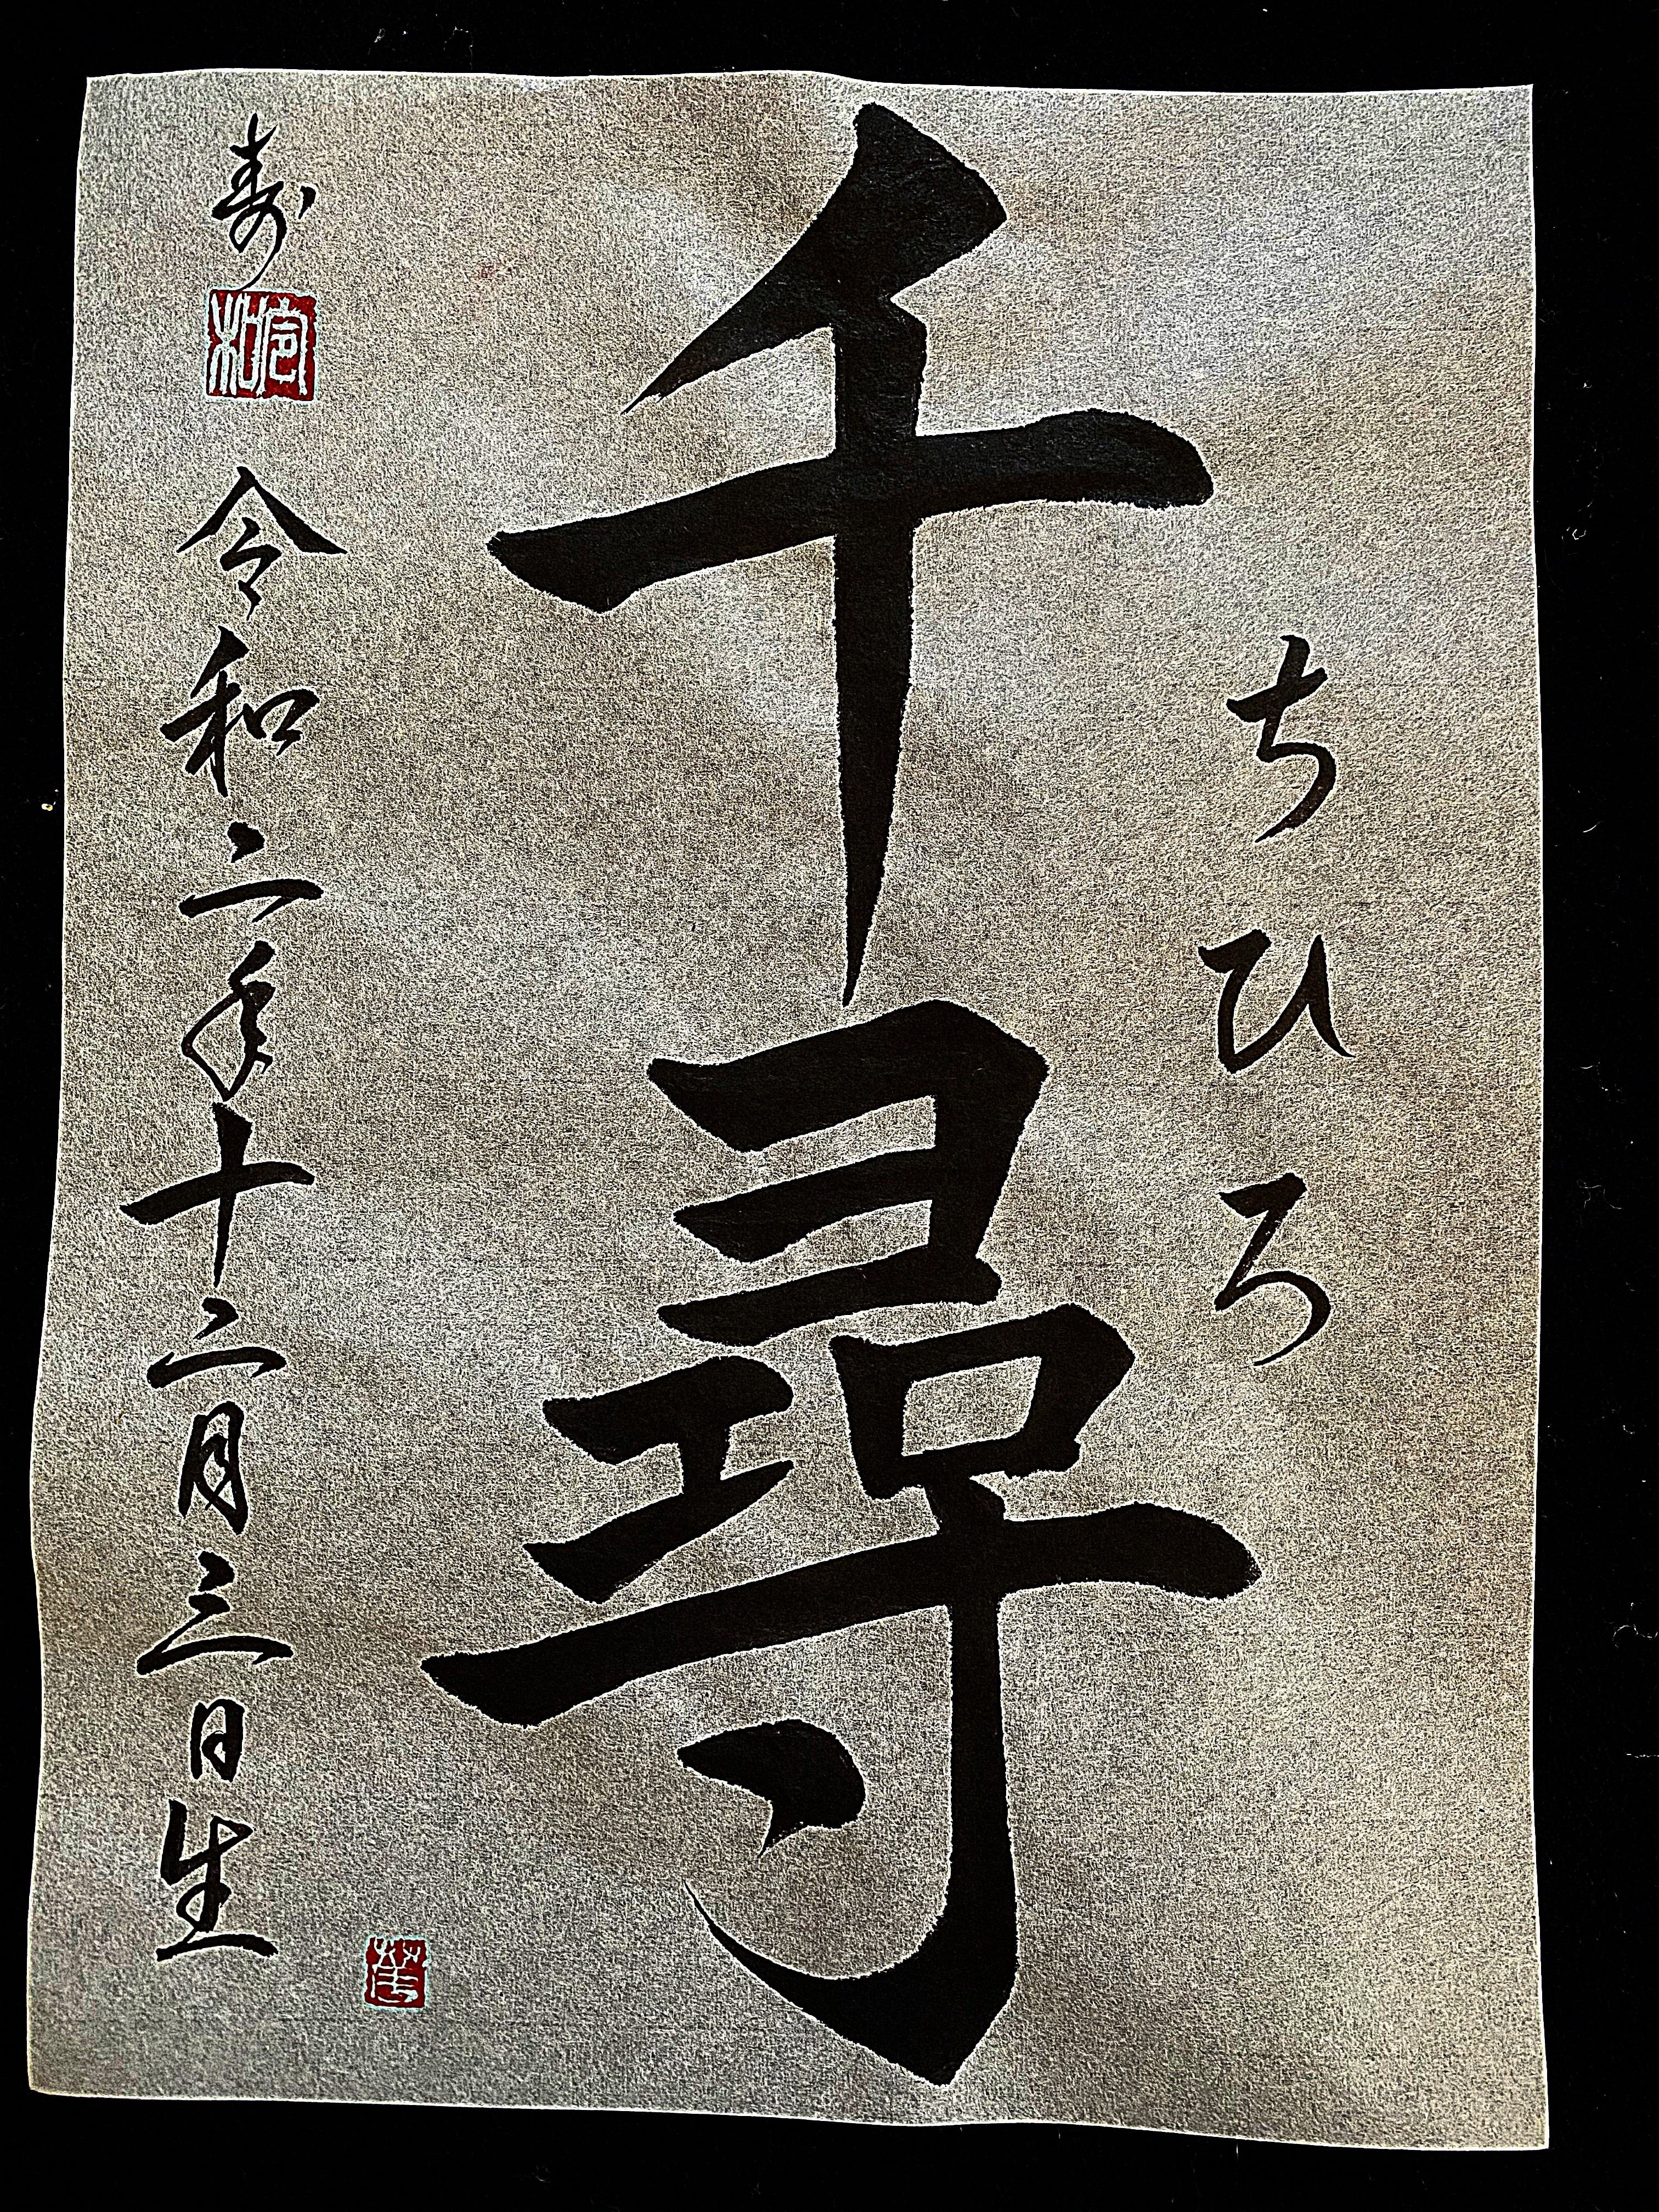 ちひろ
千尋
寿
令和
令和二年十二月三日生